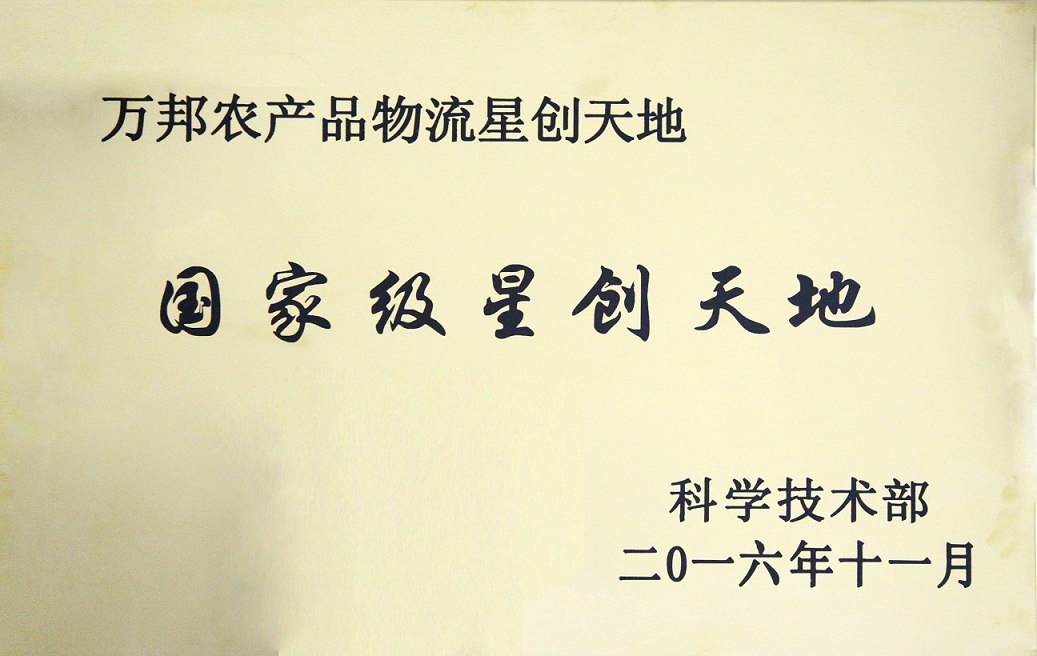 万邦农产品物流星创天地
国家级星创天地
科学技术部
二0一六年十一月